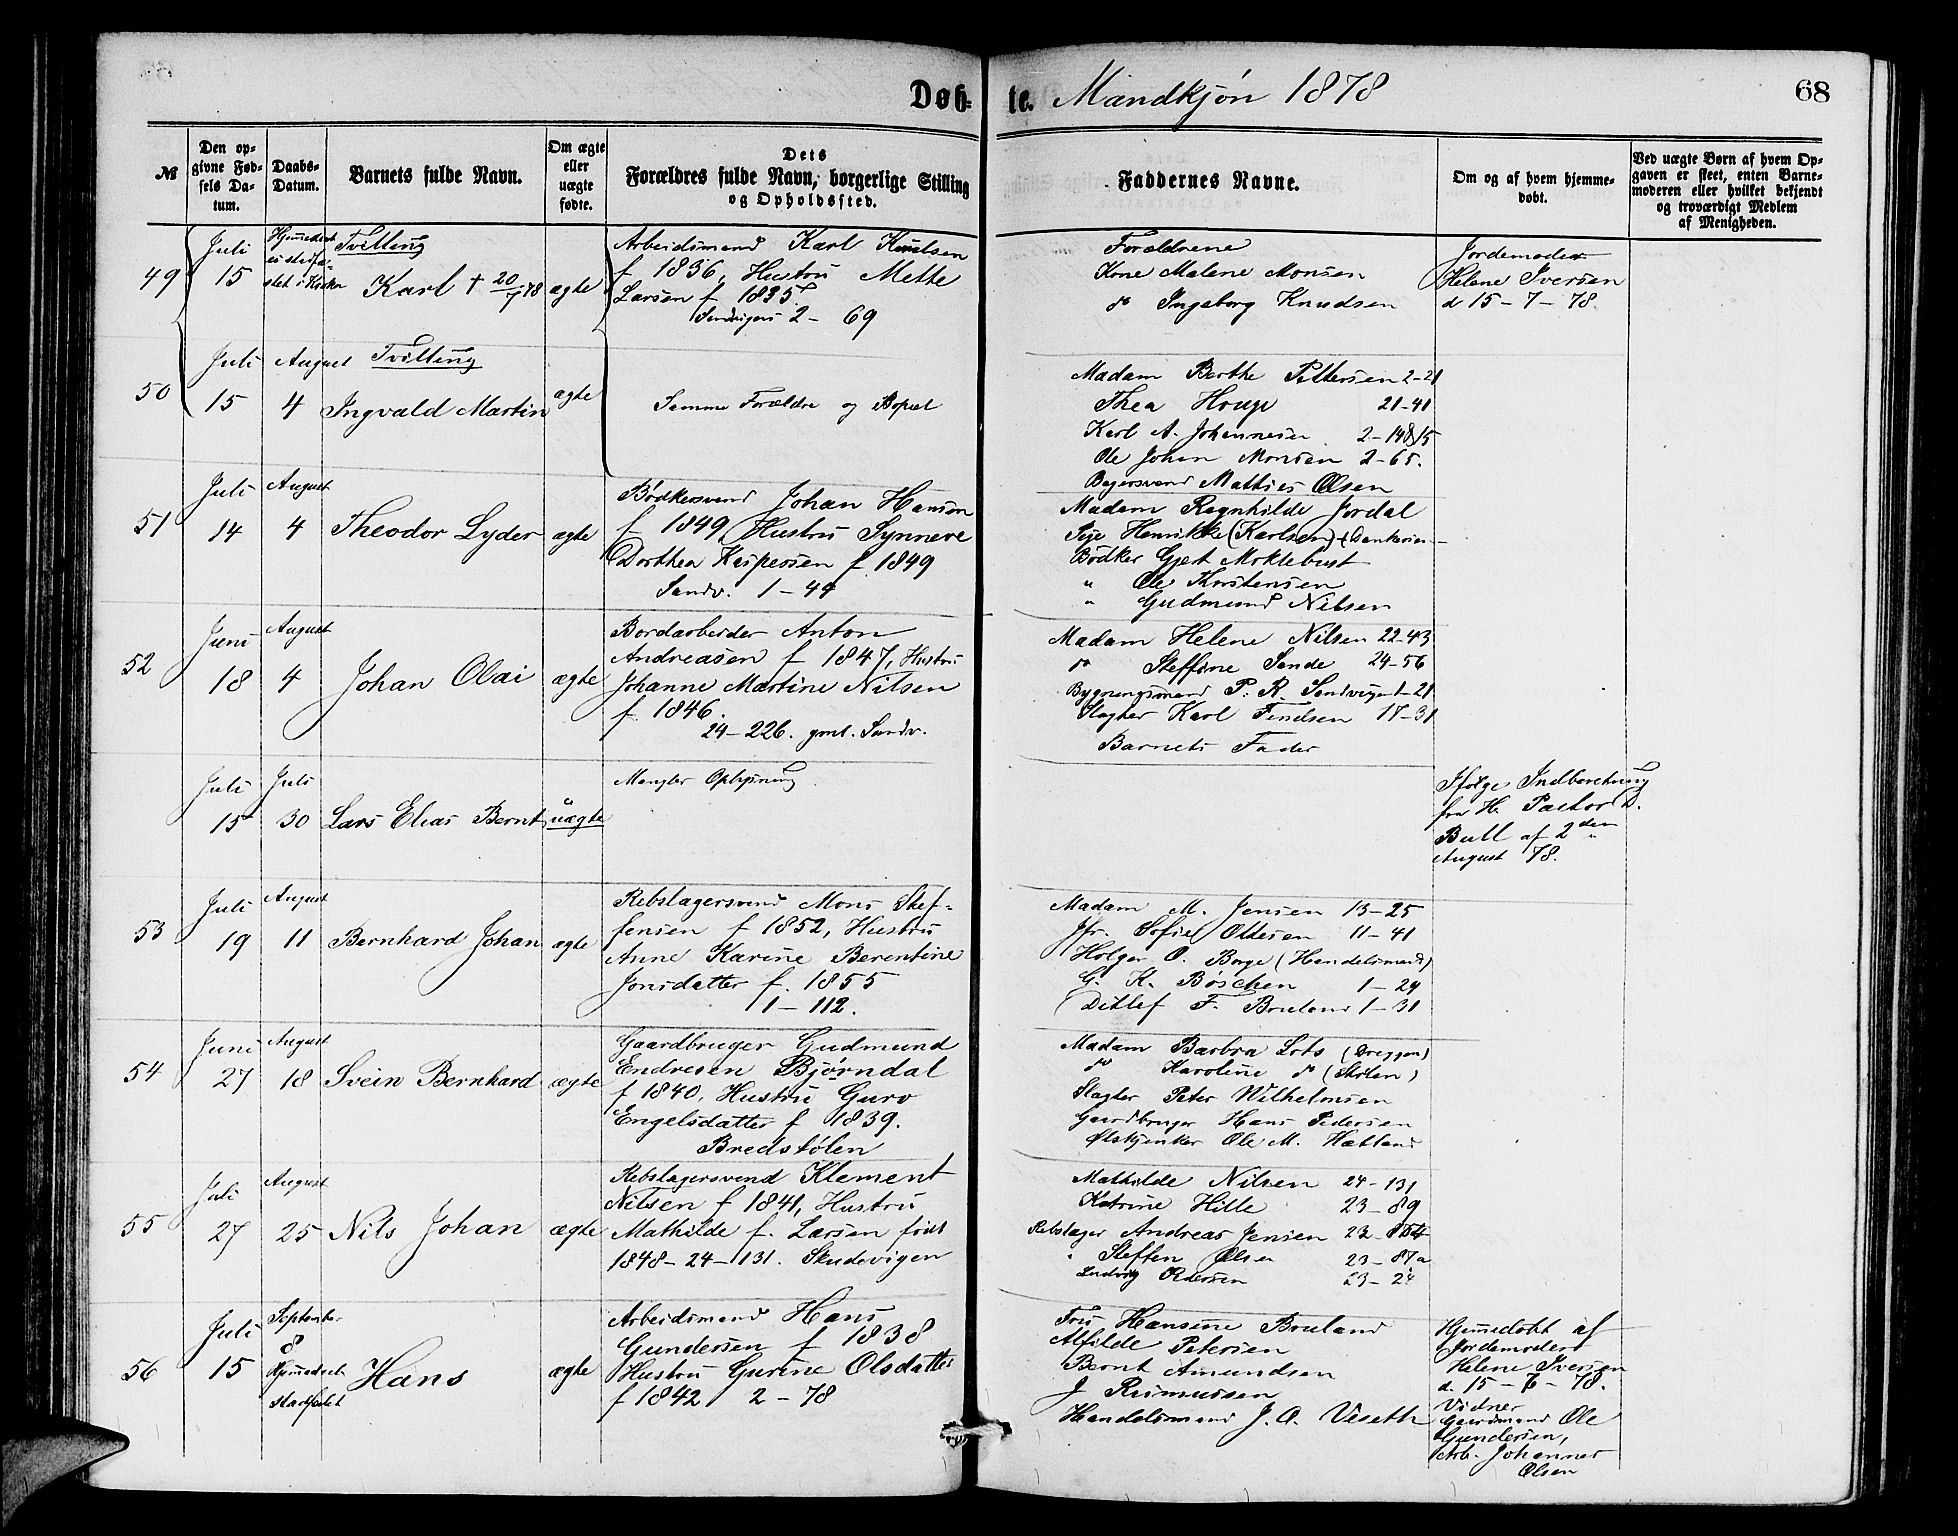 Døb-
te. Mandkjøn 1878
68
№
Den op-
givne Fød-
sels Da-
tum.
Daabs-
Datum.
Barnets fulde Navn.
Om ægte
eller
uægte
fødte.
Dets
Forældres fulde Navn, borgerlige Stilling
og Opholdssted.
Faddernes Navne.
Om og af hvem hjemme-
døbt.
Ved uægte Børn af hvem Op-
gaven er skeet, enten Barne-
moderen eller hvilket bekjendt
og troværdigt Medlem
af Menigheden.
49
Juli
15
Hjemmedøbt
stet i Kirken
Tvilling
Karl † 20/7 78
ægte
Arbeidsmand Karl Knutsen
f 1836, Hustru Mette
Larsen f 1835.
Sandvigen 2 - 69
Forældrene
Kone Malene Monsen
do Ingeborg Knudsen
Jordemoder
Helene Iversen
d 15 - 7 - 78.
50
Juli
15
August
4
Tvilling
Ingvald Martin
ægte
Samme Forældre og Bopæl
Madam Berthe Pettersen 2-21
Thea Houge 21-41
Karl A. Johannesen 2-148/15
Ole Johan Monsen 2-65.
Bøgersvend Mathies Olsen
51
Juli
14
August
4
Theodor Lyder
ægte
Bødkersvend Johan Hansen
f 1849, Hustru Synneve
Dorthea Kaspersen f. 1849
Sandv. 1-44
Madam Ragnhilde Jordal
Pige Henrikke (Karlsen) Dankersen
Bødker Gjert Moktebust
" Ole Thorstensen
" Gudmund Nilsen
52
Juni
18
August
4
Johan Olai
ægte
Bordarbeider Anton
Andreasen f 1847, Hustru
Johanne Martine Nilsen
f. 1846.
24-226. gml. Sandv.
Madam Helene Nilsen 22-43
do Steffine Sande 24-56
Bygningsmand P. R. Sandvigen 1-21
Slagter Karl Findsen 17-31
Barnets Fader
Juli
15
Juli
30
Lars Elias Bernt
uægte
Mangler Oplysning
Ifølge Indberetning
fra H. Pastor D.
Bull af 2den
August 78.
53
Juli
19
August
11
Bernhard Johan
ægte
Rebslagersvend Mons Stef-
fensen f 1852, Hustru
Anne Karine Berentine
Jonsdatter f. 1855
1-112.
Madam M. Jensen 13-25
Jfr. Sofie Ottesen 11-41
Holger O. Borge (Handelsmand)
G. K. Bøschen 1-29
Ditlef F. Bruland 1-31
54
Juni
27
August
18
Svein Bernhard
ægte
Gaardbruger Gudmund
Endresen Bjørndal
f 1840, Hustru Guro
Engelsdatter f 1839.
Bredstølen
Madam Barbra Lots (Dreggen)
do Karoline do (Stølen)
Slagter Peter Wilhelmsen
Gaardbruger Hans Pedersen
Ølskjenker Ole M. Hatland
55
Juli
27
August
25
Nils Johan
ægte
Rebslagersvend Klement
Nilsen f 1841, Hustru
Mathilde f. Larsen født
1848-24-131. Skudevigen
Mathilde Nilsen 24-131
Katrine Hille 23-89
Rebslager Andreas Jensen 23-
" Steffen Olsen 23-87a
Ludvig 23-24
56
Juli
15
September
8
Hjemmedøbt
Stadfæstet
Hans
ægte
Arbeidsmand Hans
Gundersen f 1838
Hustru Gurine Olsdatter
f 1842 2-78
Fru Hansine Bruland
Alfilde Petersen
Bernt Amundsen
J Rasmussen
Handelsmand J. A. Viseth
Hjemmedøbt af
Jordemoder
Helene Iversen
d. 15-7-78.
Vidner
Gaardmand Ole
Gundersen,
Arb. Johannes
Olsen